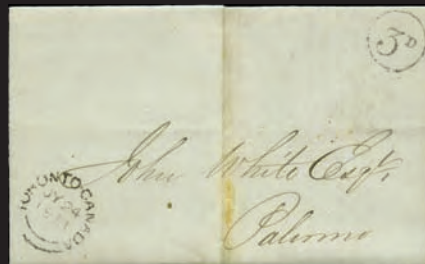 3D
John White Esqr.
Palermo
TORONTO·CANADA
JY 24